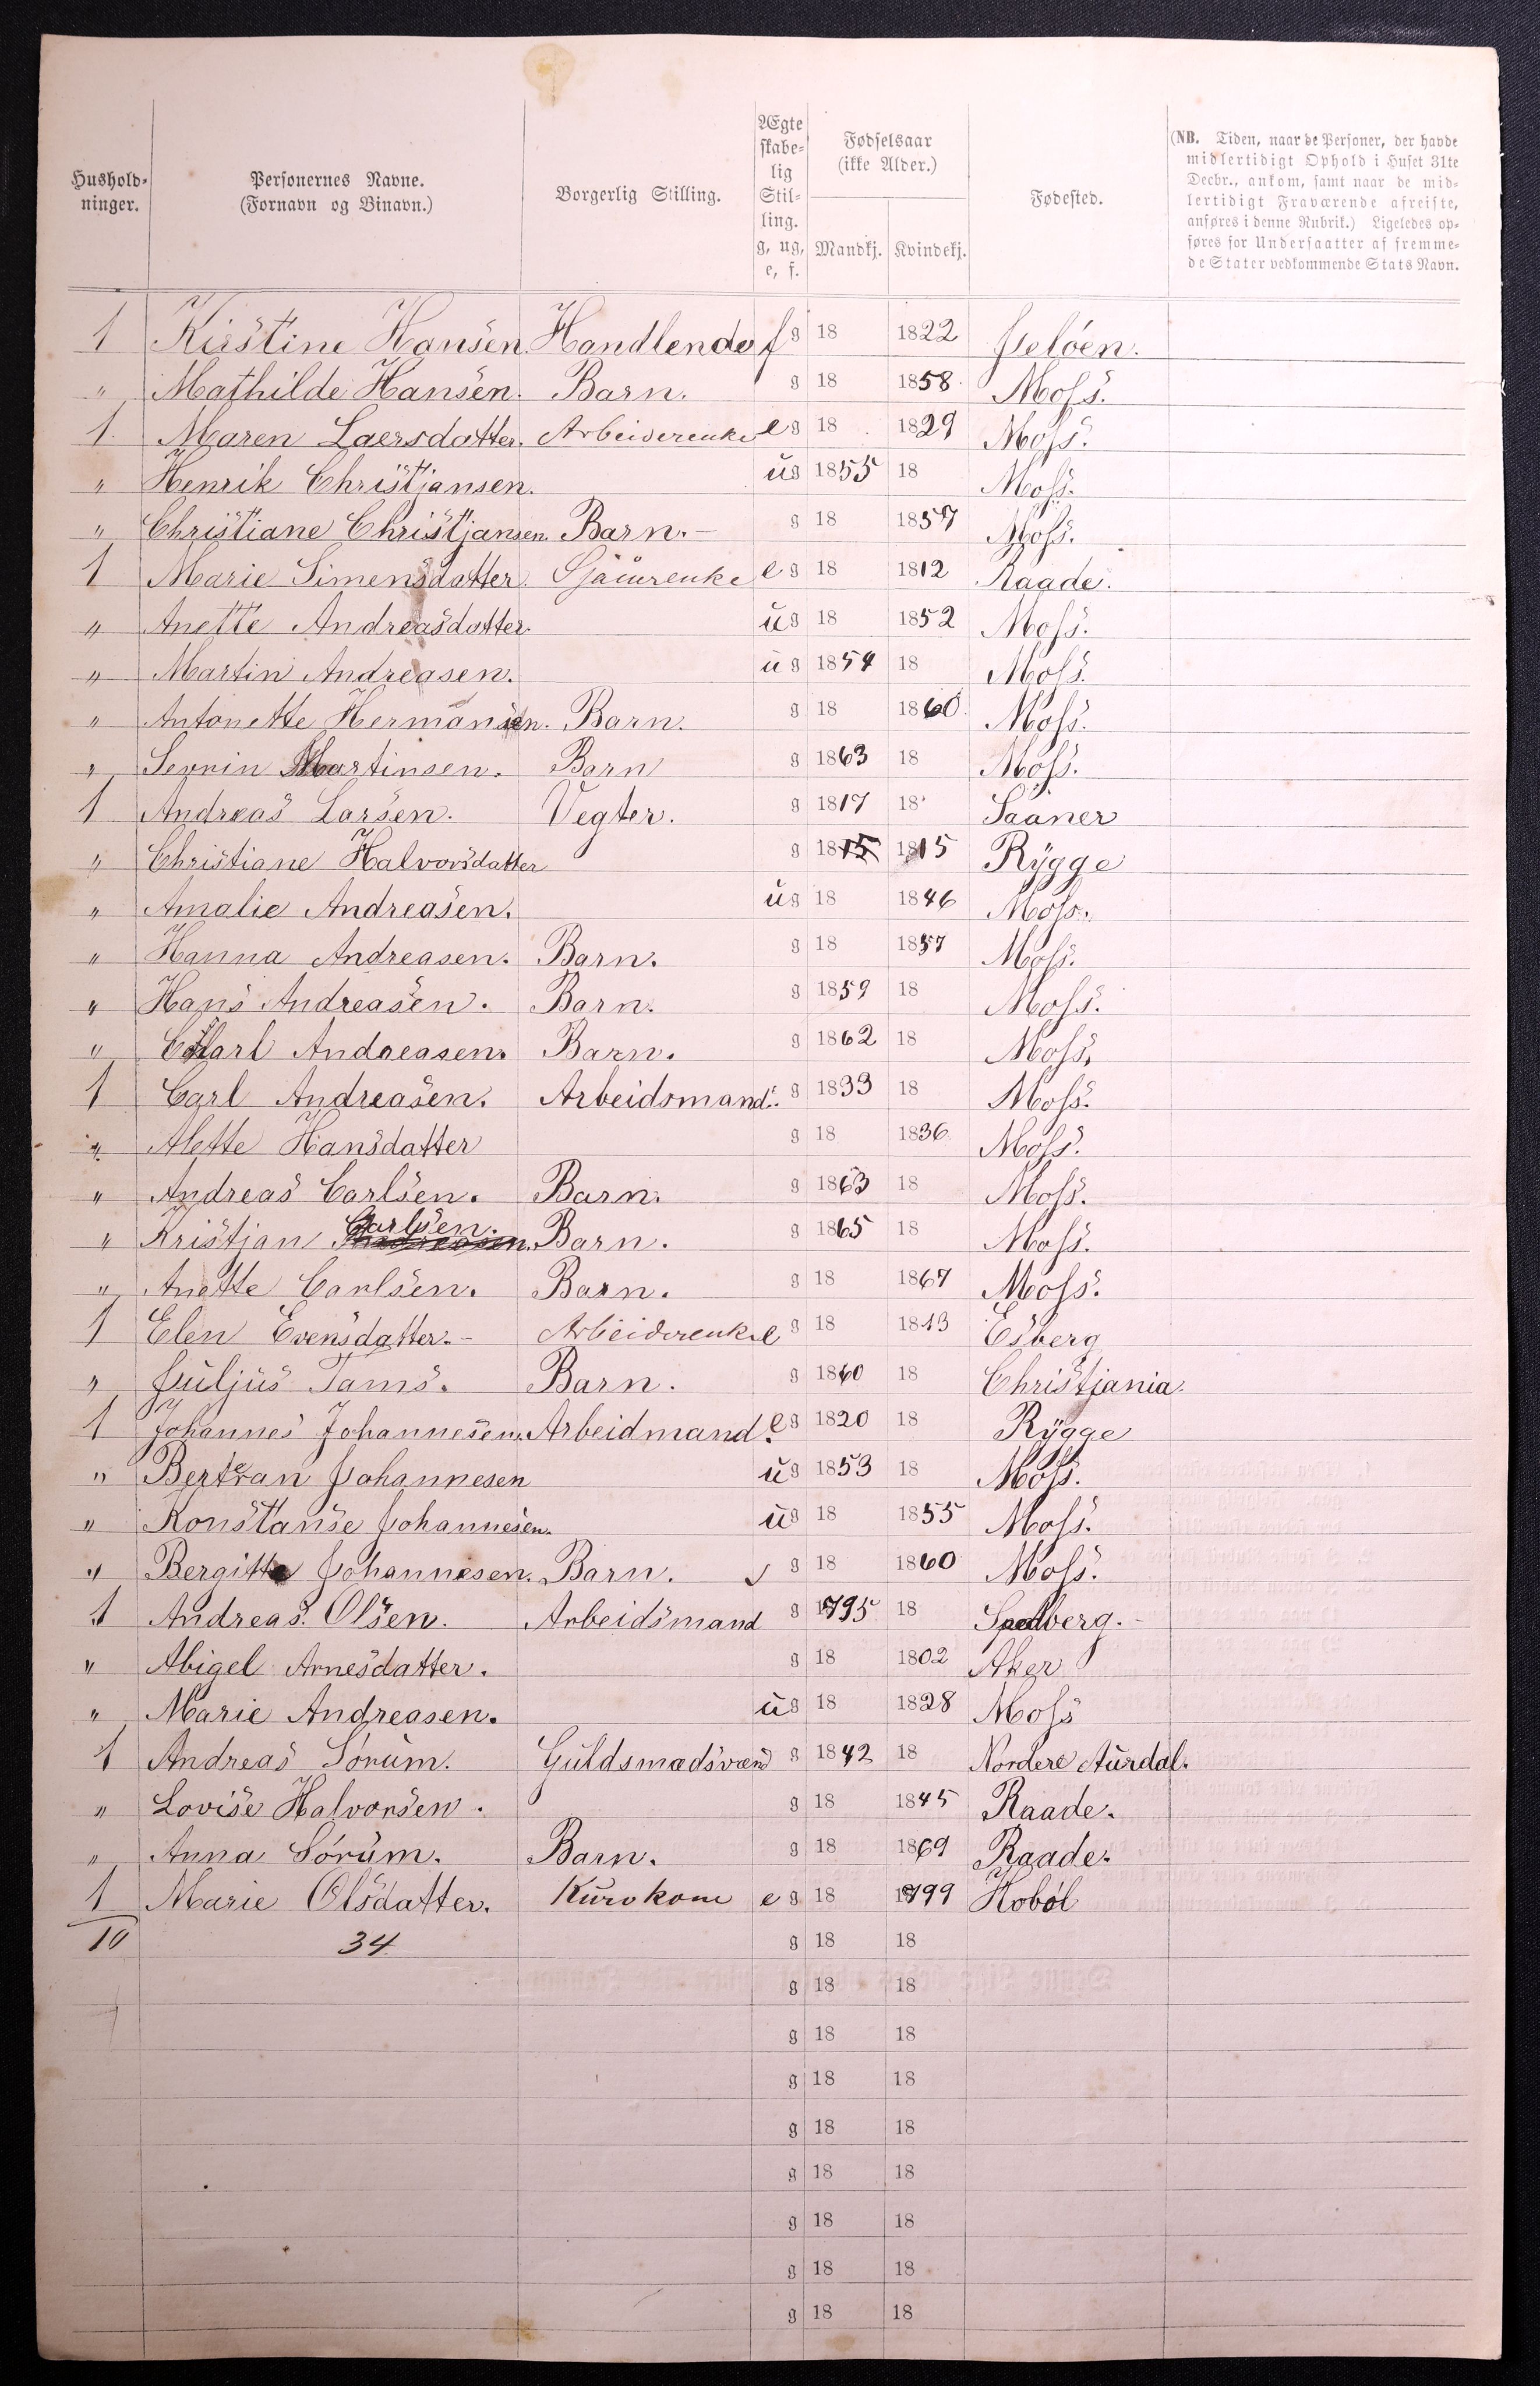 Hushold-ninger. Personernes Navne. (Fornavn og Binavn.) Borgerlig Stilling. Ægteskabe-lig Stil-ling. g, ug, e, f. Fødselsaar (ikke Alder.) Mandkj. Kvindekj. Fødested. (NB. Tiden, naar de Personer, der havde midlertidigt Ophold i Huset 31te Decbr., ankom, samt naar de mid-lertidigt Fraværende afreiste, anføres i denne Rubrik.) Ligeledes op-føres for Undersaatter af fremme-de Stater vedkommende Stats Navn.
1 Kirstine Hansen. Handlende f g 18 1822 Jeløen.
" Mathilde Hansen. Barn. g 18 1858 Moss.
1 Maren Laersdatter. Arbeiderenke e g 18 1829 Moss.
" Henrik Christjansen. ug 1855 18 Moss.
" Christiane Christjansen. Barn.- g 18 1857 Moss.
1 Marie Simensdatter. Sjäurenke e g 18 1812 Raade.
" Anette Andreasdatter. ug 18 1852 Moss.
" Martin Andreasen. ug 1854 18 Moss.
" Antonette Hermansen. Barn. g 18 1860 Moss.
" Serrin Martinsen. Barn g 1863 18 Moss.
1 Andreas Larsen. Vegter. g 1817 18 Saaner
" Christiane Halvorsdatter g 1815 1815 Rygge
" Amalie Andreasen. ug 18 1846 Moss.
" Hanna Andreasen. Barn. g 18 1857 Moss.
" Hans Andreasen. Barn. g 1859 18 Moss.
" Carl Andreasen. Barn. g 1862 18 Moss.
1 Carl Andreasen. Arbeidsmand. g 1833 18 Moss.
" Alette Hansdatter g 18 1836 Moss.
" Andreas Carlsen. Barn. g 1863 18 Moss.
" Kristjan Andreasen. Carlsen. Barn. g 1865 18 Moss.
" Anette Carlsen. Barn. g 18 1867 Moss.
1 Elen Evensdatter.- Arbeiderenke e g 18 1813 Esberg
" Juljus Tams. Barn. g 1860 18 Christjania.
1 Johannes Johannesen. Arbeidmand. e g 1820 18 Rygge
" Bertran Johannesen ug 1853 18 Moss.
" Konstanse Johannesen. ug 18 1855 Moss.
" Bergitte Johannesen. Barn. g 18 1860 Moss.
1 Andreas Olsen. Arbeidsmand g 1795 18 Spedberg.-
" Abigel Arnesdatter. g 18 1802 Aker
" Marie Andreasen. ug 18 1828 Moss
1 Andreas Sørum. Guldsmedsvend g 1842 18 Nordere Aurdal.
" Lovise Halvorsen. g 18 1845 Raade.
" Anna Sørum. Barn. g 18 1869 Raade.
1 Marie Olsdatter. Kurvkone e g 18 1799 Hobøl
10 34 g 18 18
g 18 18
g 18 18
g 18 18
g 18 18
g 18 18
g 18 18
g 18 18
g 18 18